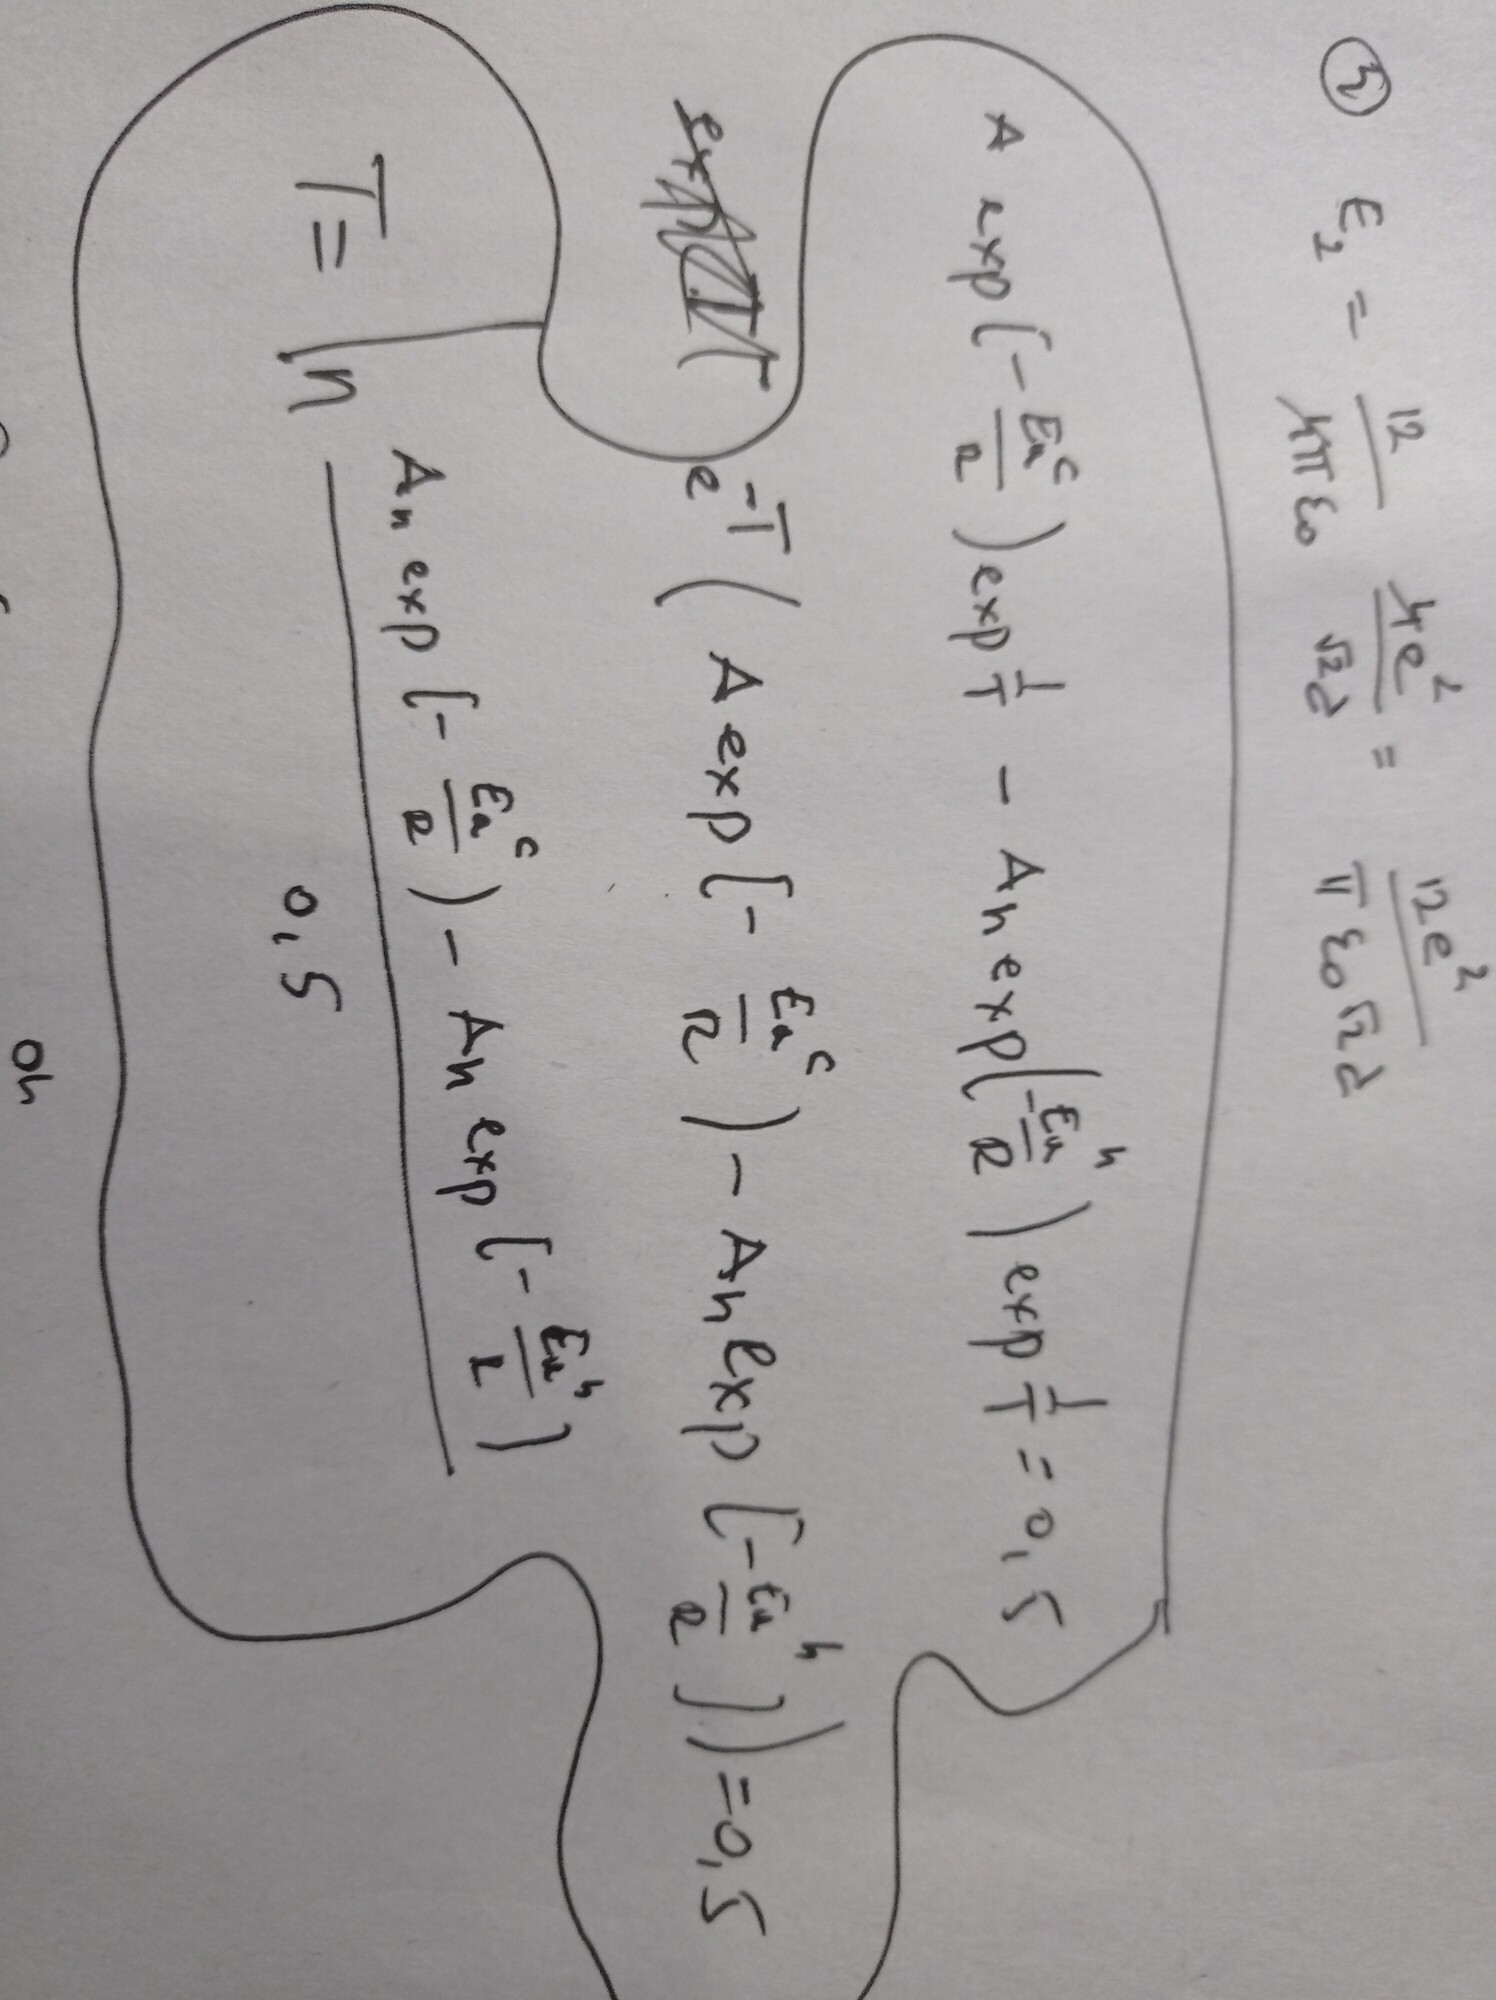 ④ E₂ = 12/(4πε₀) 4e²/(√2d) = 12e²/(πε₀√2d)
A exp(-Eaᶜ/R) exp 1/T - Aₕ exp(-Eaʰ/R) exp 1/T = 0,5
e⁻ᵀ (A exp(-Eaᶜ/R) - Aₕ exp(-Eaʰ/R)) = 0,5
T = ln (Aₕ exp(-Eaᶜ/R) - Aₕ exp(-Eaʰ/R))/0,5